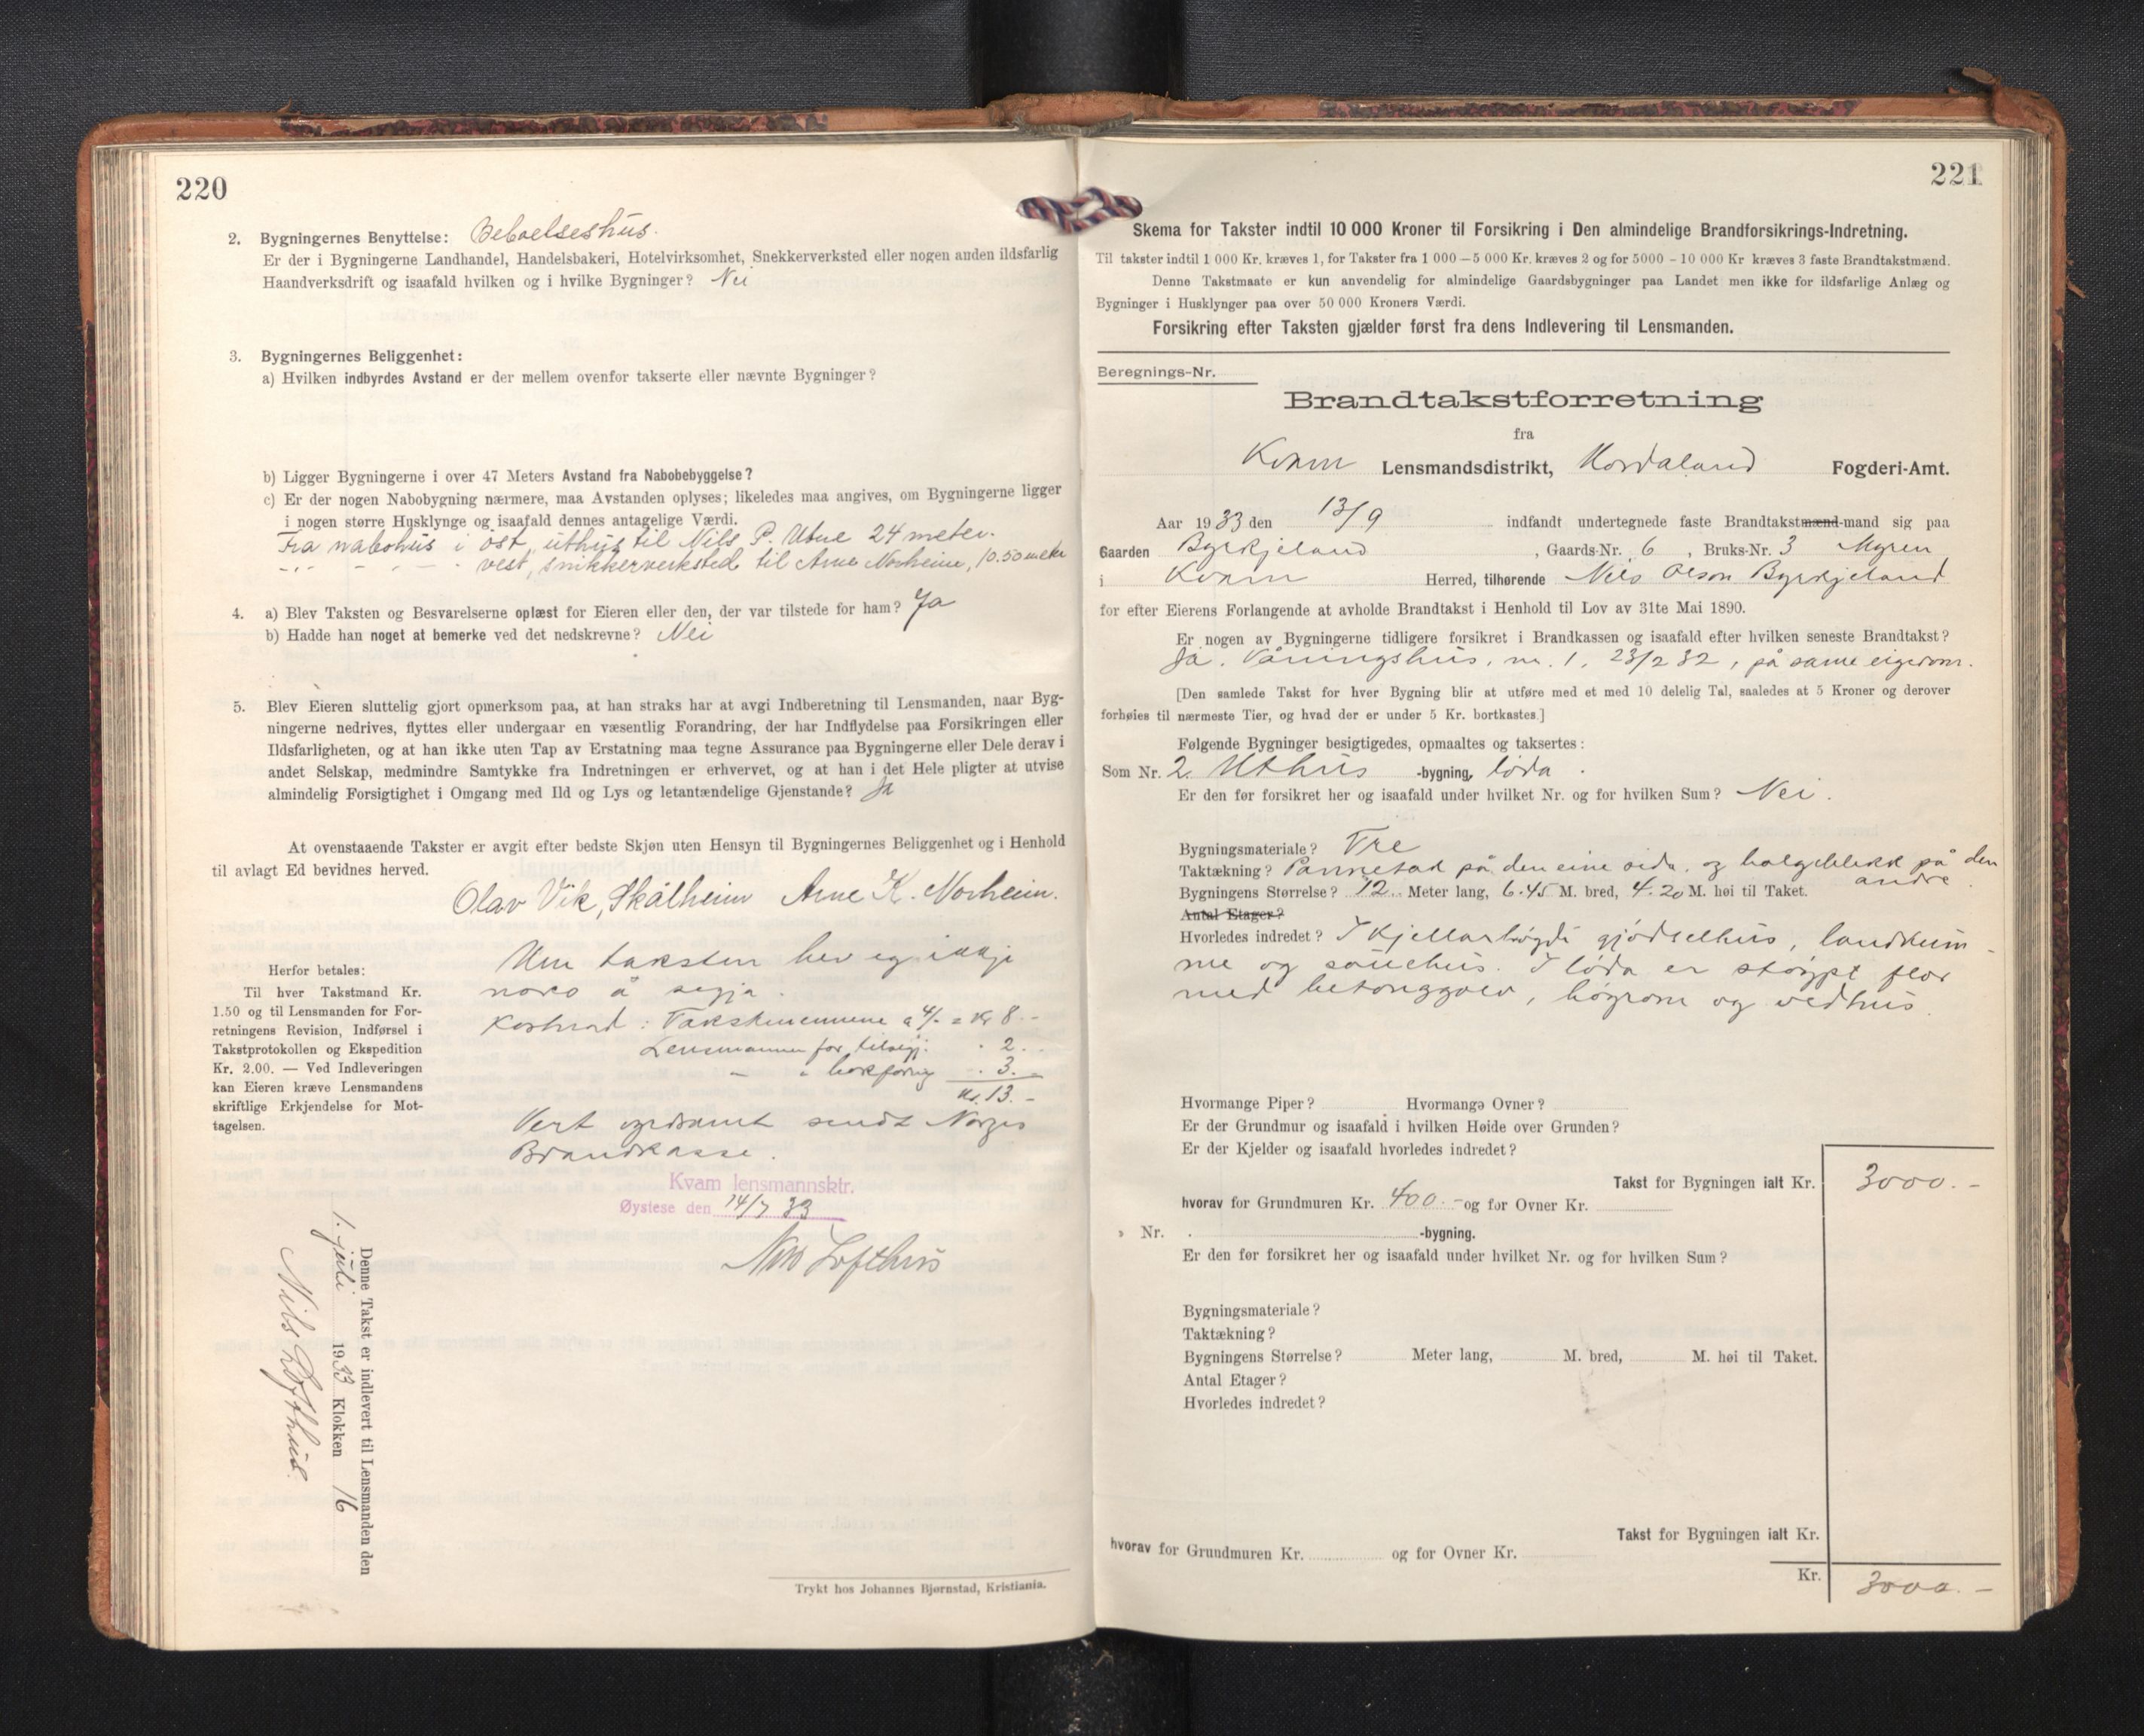 220
2. Bygningernes Benyttelse: Beboelseshus.
Er der i Bygningerne Landhandel, Handelsbakeri, Hotelvirksomhet, Snekkerverksted eller nogen anden ildsfarlig
Haandverksdrift og isaafald hvilken og i hvilke Bygninger? Nei
3. Bygningernes Beliggenhet:
a) Hvilken indbyrdes Avstand er der mellem ovenfor takserte eller nævnte Bygninger?
b) Ligger Bygningerne i over 47 Meters Avstand fra Nabobebyggelse?
c) Er der nogen Nabobygning nærmere, maa Avstanden oplyses; likeledes maa angives, om Bygningerne ligger
i nogen større Husklynge og isaafald dennes antagelige Værdi.
Fra nabohus i øst, uthus til Nils P. Utne 24 meter.
-"- - " - vest, snikkerverksted til Arne Norheim, 10.50 meter
4. a) Blev Taksten og Besvarelserne oplæst for Eieren eller den, der var tilstede for ham? Ja
b) Hadde han noget at bemerke ved det nedskrevne? Nei
5. Blev Eieren sluttelig gjort opmerksom paa, at han straks har at avgi Indberetning til Lensmanden, naar Byg-
ningerne nedrives, flyttes eller undergaar en væsentlig Forandring, der har Indflydelse paa Forsikringen eller
Ildsfarligheten, og at han ikke uten Tap av Erstatning maa tegne Assurance paa Bygningerne eller Dele derav i
andet Selskap, medmindre Samtykke fra Indretningen er erhvervet, og at han i det Hele pligter at utvise
almindelig Forsigtighet i Omgang med Ild og Lys og letantændelige Gjenstande? Ja
At ovenstaaende Takster er avgit efter bedste Skjøn uten Hensyn til Bygningernes Beliggenhet og i Henhold
til avlagt Ed bevidnes herved.
Olav Vik, Skålheim Arne K. Norheim.
Um taksten hev eg ikkje
noko å segja.
Kostnad: Takstmennene a 4/- = kr 8.-
Lensmannen for tilsegj. " 2.-
- " bokføring " 3.-
kr. 13.-
Vert endsamt sendt Norges
Brandkasse.
Kvam lensmannsktr.
Øystese den 14/7 33
Nils Lofthus
Herfor betales:
Til hver Takstmand Kr.
1.50 og til Lensmanden for For-
retningens Revision, Indførsel i
Takstprotokollen og Ekspedition
Kr. 2.00. — Ved Indleveringen
kan Eieren kræve Lensmandens
skriftlige Erkjendelse for Mot-
tagelsen.
Denne Takst er indlevert til Lensmanden den
1. juli 1933 Klokken 16
Nils Lofthus.
Trykt hos Johannes Bjørnstad, Kristiania.
221
Skema for Takster indtil 10 000 Kroner til Forsikring i Den almindelige Brandforsikrings-Indretning.
Til takster indtil 1 000 Kr. kræves 1, for Takster fra 1 000 — 5 000 Kr. kræves 2 og for 5000 - 10 000 Kr kræves 3 faste Brandtakstmænd.
Denne Takstmaate er kun anvendelig for almindelige Gaardsbygninger paa Landet men ikke for ildsfarlige Anlæg og
Bygninger i Husklynger paa over 50 000 Kroners Værdi.
Forsikring efter Taksten gjælder først fra dens Indlevering til Lensmanden.
Beregnings-Nr.
Brandtakstforretning
fra
Kvam Lensmandsdistrikt, Hordaland Fogderi-Amt.
Aar 1933 den 13/9 indfandt undertegnede faste Brandtakstmænd-mand sig paa
Gaarden Byrkjeland, Gaards-Nr. 6, Bruks-Nr. 3 Myren
i Kvam Herred, tilhørende Nils Olson Byrkjeland
for efter Eierens Forlangende at avholde Brandtakst i Henhold til Lov av 31te Mai 1890.
Er nogen av Bygningerne tidligere forsikret i Brandkassen og isaafald efter hvilken seneste Brandtakst?
Ja. Våningshus, nr. 1, 23/2 32, på same eigedom.
[Den samlede Takst for hver Bygning blir at utføre med et med 10 delelig Tal, saaledes at 5 Kroner og derover
forhøies til nærmeste Tier, og hvad der er under 5 Kr. bortkastes.]
Følgende Bygninger besigtigedes, opmaaltes og taksertes:
Som Nr. 2. Uthus -bygning, løda.
Er den før forsikret her og isaafald under hvilket Nr. og for hvilken Sum? Nei.
Bygningsmateriale? Tre
Taktækning? Pannetak på den eine sida, og bølgeblikk på den
andre.
Bygningens Størrelse? 12 Meter lang, 6.45 M. bred, 4.20 M. høi til Taket.
Antal Etager?
Hvorledes indredet? I kjellarhøgdi gjødselhus, landkum-
me og sauehus. I løda er støypt flor
med betonggolv, høyrom og vedhus.
Hvormange Piper? Hvormange Ovner?
Er der Grundmur og isaafald i hvilken Høide over Grunden?
Er der Kjelder og isaafald hvorledes indredet?
Takst for Bygningen ialt Kr. 3000.-
hvorav for Grundmuren Kr. 400.- og for Ovner Kr.
» Nr. -bygning.
Er den før forsikret her og isaafald under hvilket Nr. og for hvilken Sum?
Bygningsmateriale?
Taktækning?
Bygningens Størrelse? Meter lang, M. bred, M. høi til Taket.
Antal Etager?
Hvorledes indredet?
Takst for Bygningen ialt Kr.
hvorav for Grundmuren Kr. og for Ovner Kr.
Kr. 3000.-